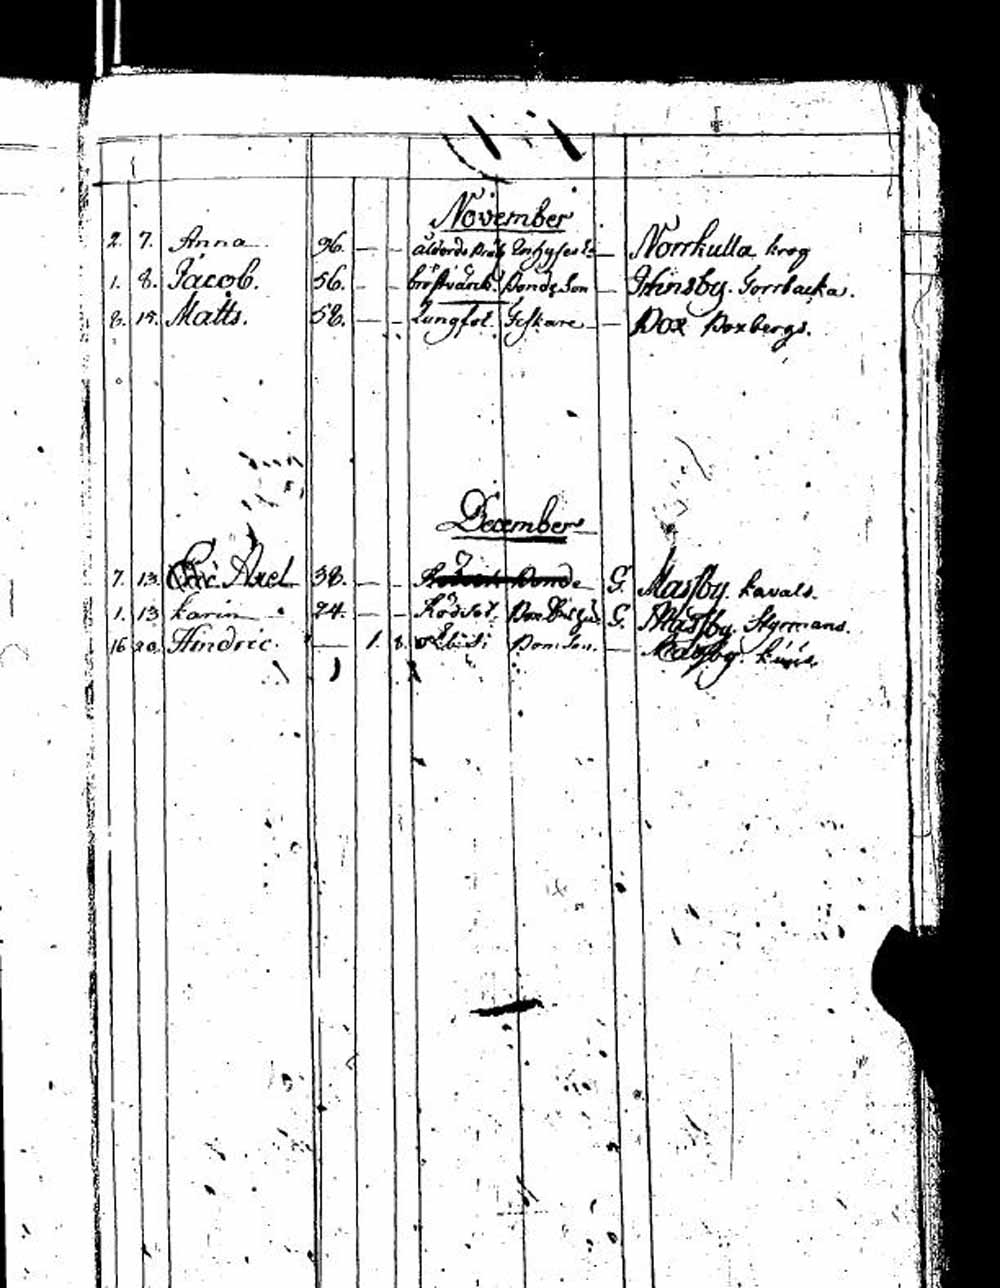 November
2. 7. Anna 96. — — Enhyses E: — Norrkulla krog
1. 8. Jacob. 56. — — bröstvärck. Bonde Son — Hinsby. Gorrbacka.
8. 15. Matts. 58. — — Lungsot. — Box Boxbergs.
December
7. 13. Eric Axel 38. — — Bonde G. Massby. kavals.
1. 13 karin 24. — — Rödsot. G. Massby. Styrmans.
16 20. Hindric. — 1. 8. Bom Son. — Massby.